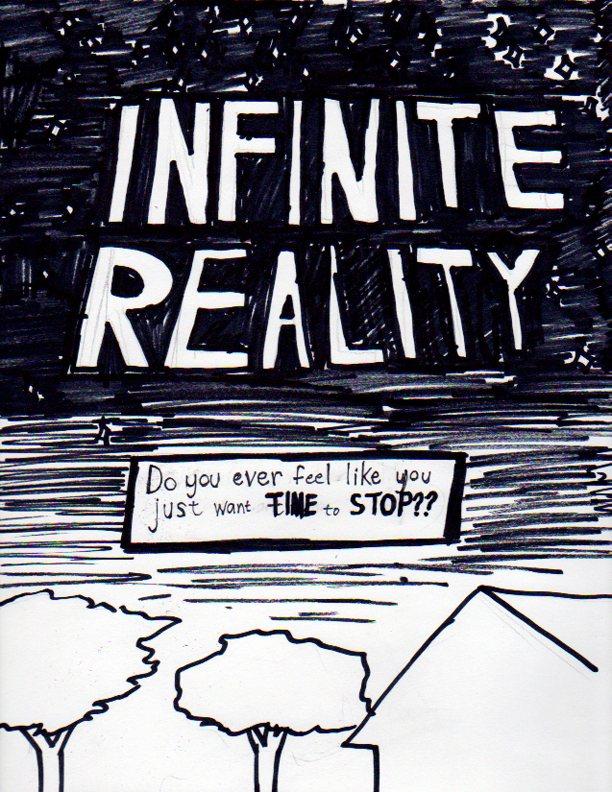 INFINITE
REALITY
Do you ever feel like you
just want TIME to STOP??